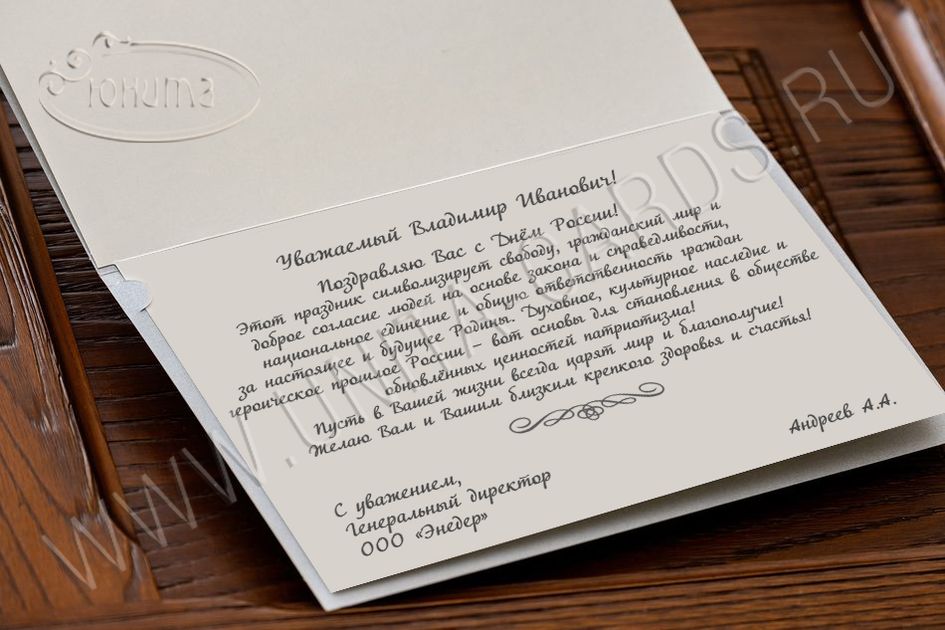 Юнита
Уважаемый Владимир Иванович!
Поздравляю Вас с Днём России!
Этот праздник символизирует свободу, гражданский мир и
доброе согласие людей на основе закона и справедливости,
национальное единение и общую ответственность граждан
за настоящее и будущее Родины. Духовное, культурное наследие и
героическое прошлое России – вот основы для становления в обществе
обновлённых ценностей патриотизма!
Пусть в Вашей жизни всегда царят мир и благополучие!
Желаю Вам и Вашим близким крепкого здоровья и счастья!
Андреев А.А.
С уважением,
Генеральный директор
ООО «Энедер»
WWW.UNITA-CARDS.RU